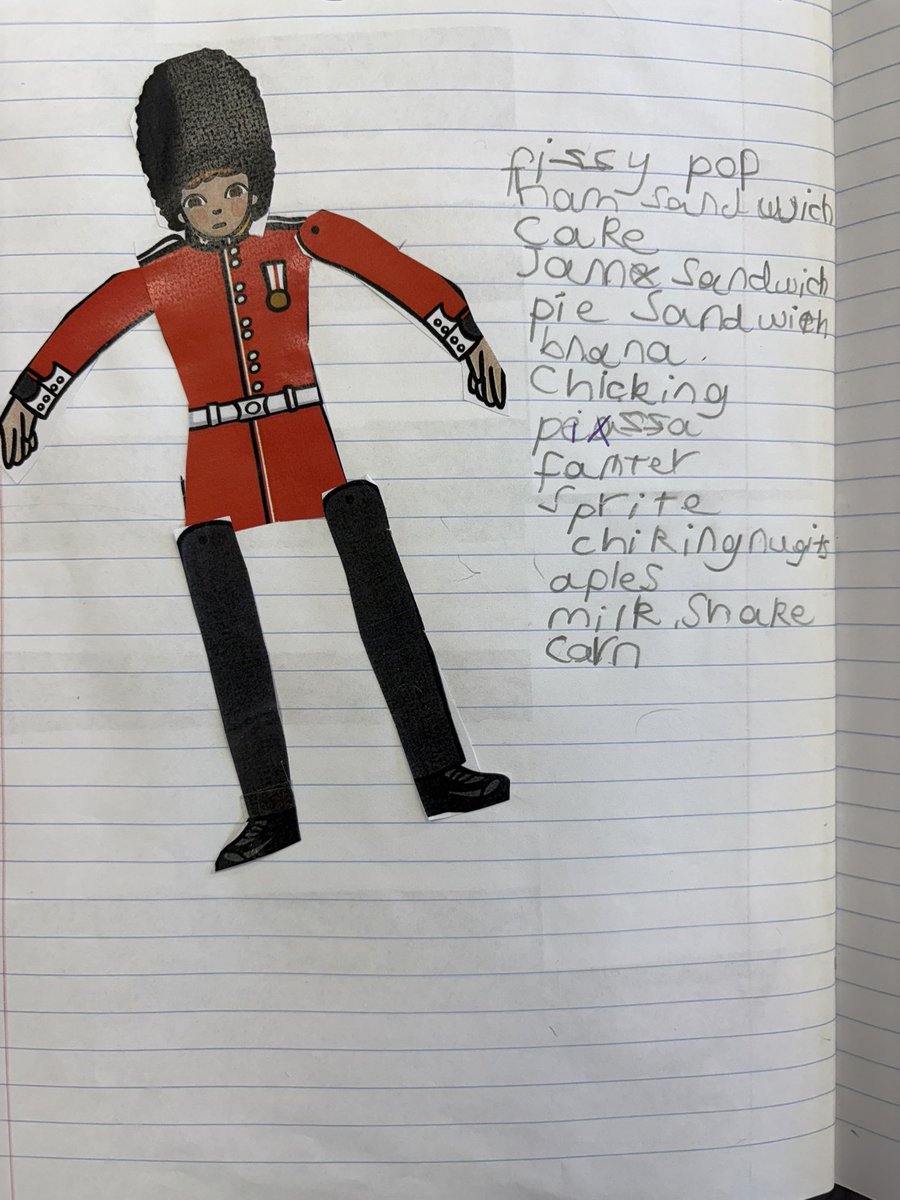 fissy pop
ham sandwich
cake
Jam sandwich
pie sandwich
bnana.
Chicking
pissa
famter
sprite
chikingnugits
aples
milk.Shake
carn